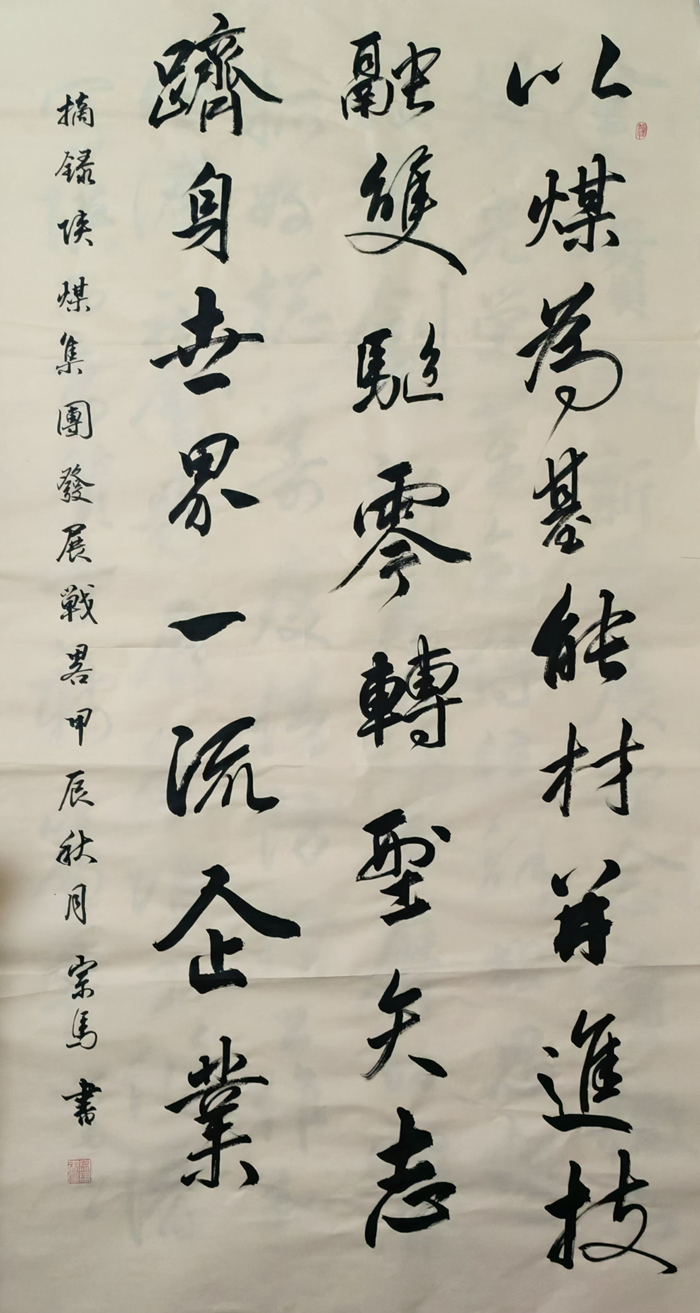 以煤為基能材並進技
融雙駆零轉型矢志
躋身世界一流企業
摘録陕煤集團發展戦畧甲辰秋月宗馬書